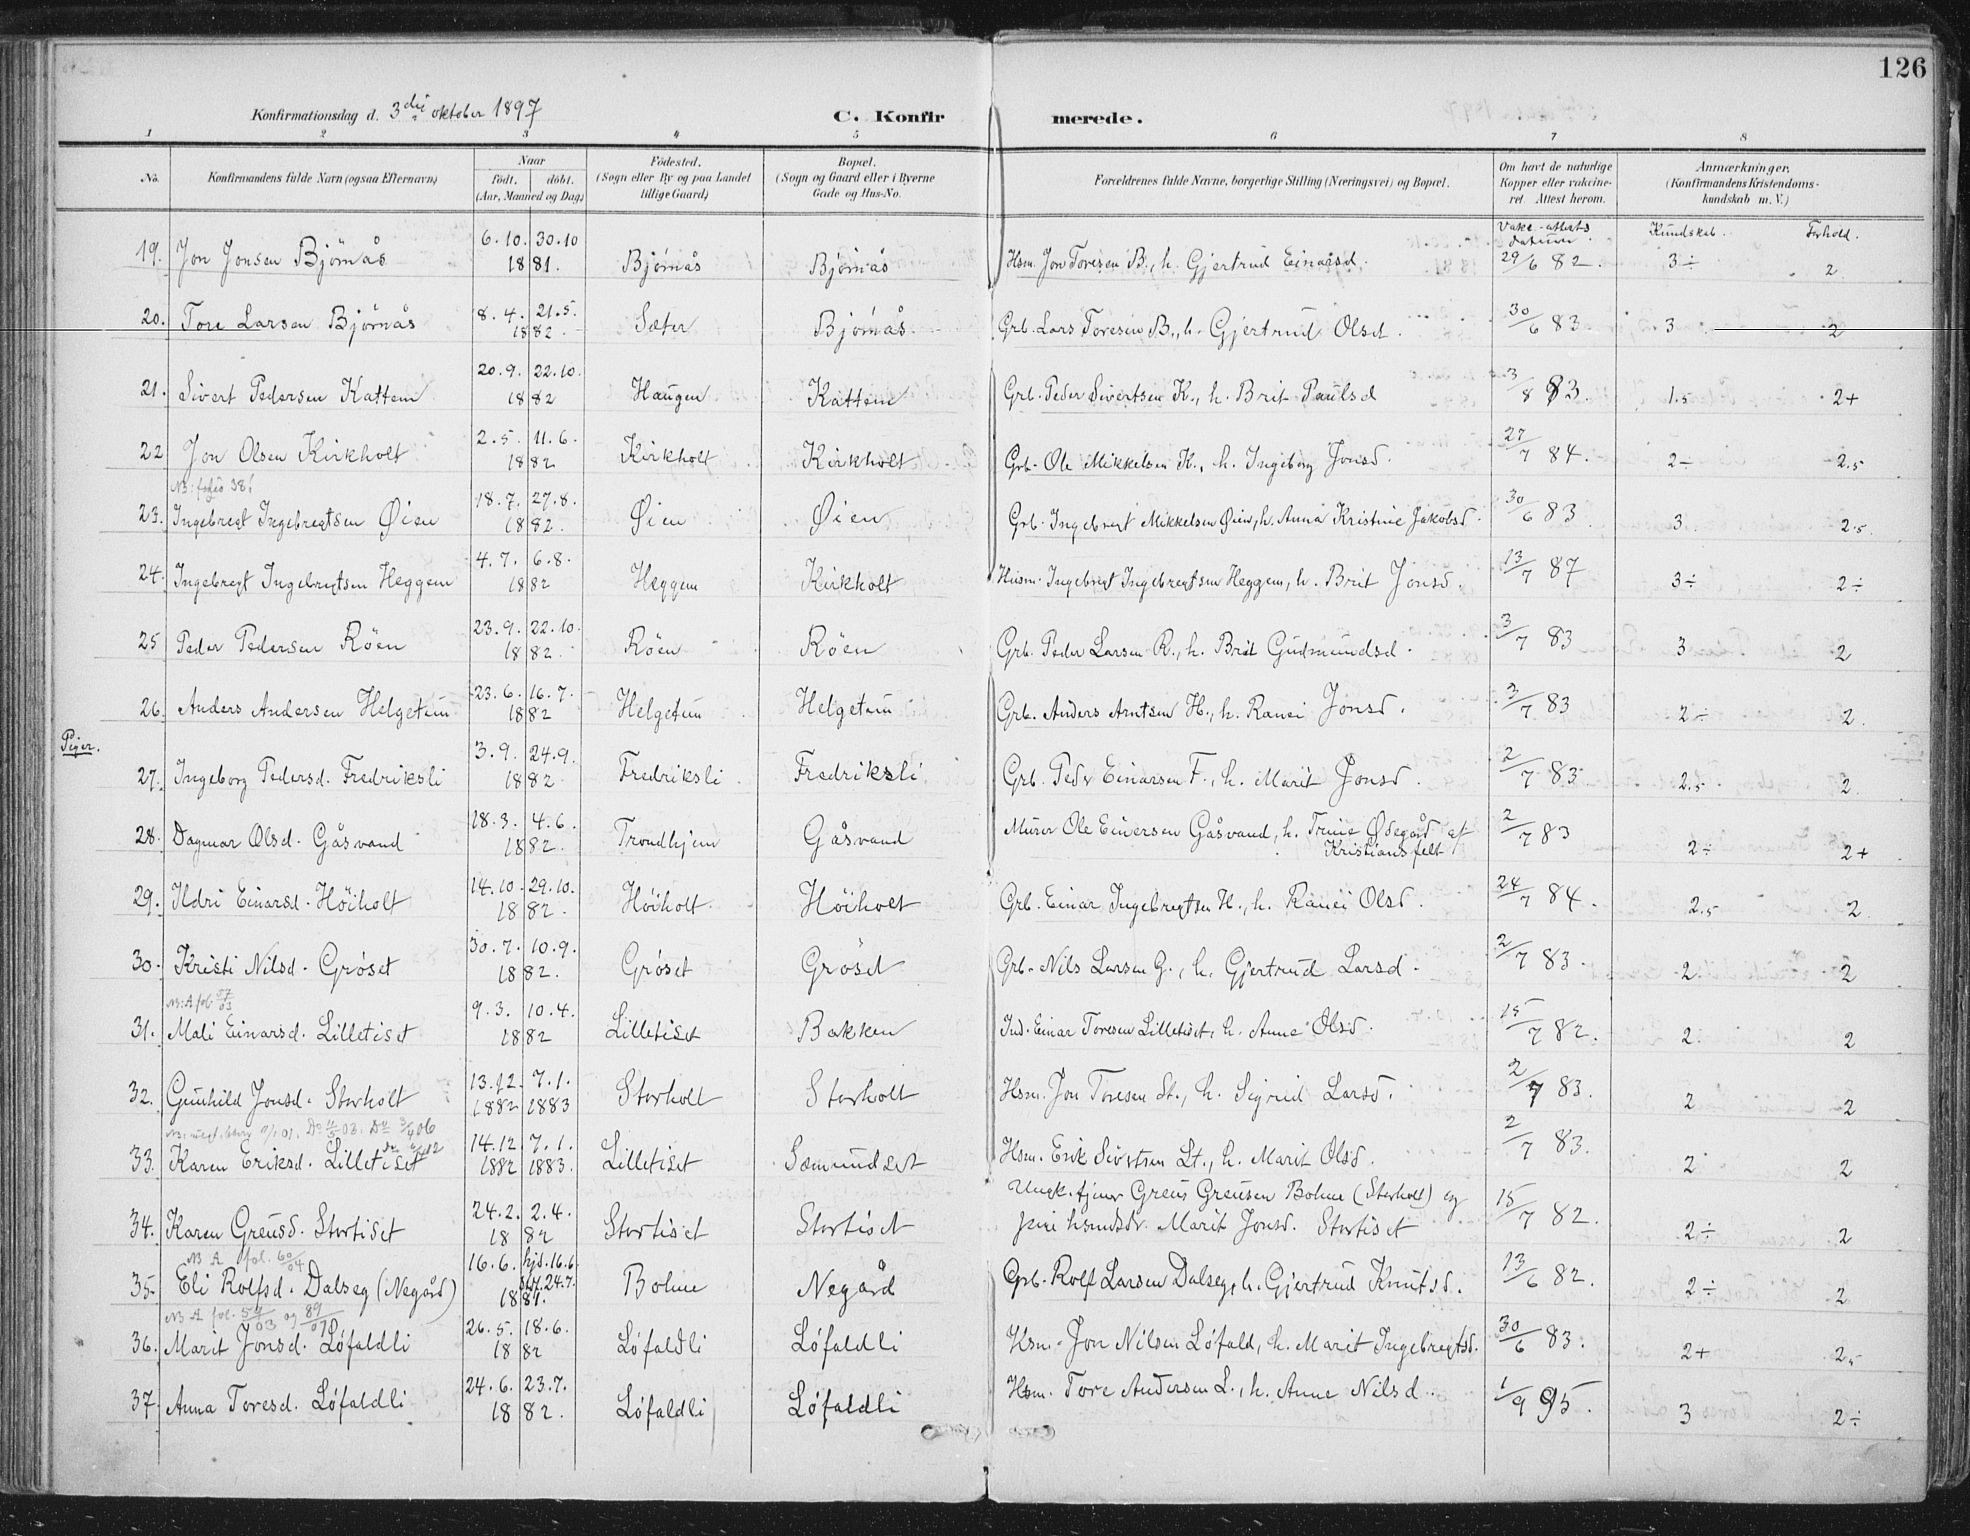 126
Konfirmationsdag d. 3die oktober 1897 C. Konfirmerede.
1 2 3 4 5 6 7 8
No. Konfirmandens fulde Navn (ogsaa Efternavn) Naar födt. döbt. (Aar, Maaned og Dag) Födested. (Sogn eller By og paa Landet tillige Gaard) Bopæl. (Sogn og Gaard eller i Byerne Gade og Hus-No. Forældrenes fulde Navne, borgerlige Stilling (Næringsvei) og Bopæl. Om havt de naturlige Kopper eller vakcineret. Attest herom. Anmærkninger. (Konfirmandens Kristendomskundskab m. V.)
Vakc.-attests datum. Kundskab. Forhold.
19. Jon Jonsen Bjørnås 6.10. 30.10 1881. Bjørnås Bjørnås Hsm. Jon Toresen B., h. Gjertrud Einarsd. 29/6 82. 3÷ 2
20. Tore Larsen Bjørnås 8.4. 21.5. 1882 Sæter Bjørnås Grb. Lars Toresen B., h. Gjertrud Olsd. 30/6 83 3 2
21. Sivert Pedersen Kattem 20.9. 22.10. 1882 Haugen Kattem Grb. Peder Sivertsen K., h. Brit Paulsd 3/8 83. 1.5 2+
22 Jon Olsen Kirkholt 2.5. 11.6. 1882 Kirkholt Kirkholt Grb. Ole Mikkelsen K., h. Ingeborg Jonsd. 27/7 84. 2÷ 2.5
23. Ingebregt Ingebregtsen Øien 18.7. 27.8. 1882. Øien Øien Grb. Ingebregt Mikkelsen Øien, h. Anna Kristine Jakobsd. 30/6 83 3. 2.5
24. Ingebregt Ingebregtsen Heggem 4.7. 6.8. 1882 Heggem Kirkholt Husm. Ingebregt Ingebregtsen Heggem, h. Brit Jonsd. 13/7 87 3÷ 2÷
25 Peder Pedersen Röen 23.9. 22.10. 1882. Röen Röen Grb. Peder Larsen R., h. Brit Gudmundsd. 3/7 83 3 2
26. Anders Andersen Helgetun 23.6. 16.7. 1882 Helgetun Helgetun Grb. Anders Arntsen H., h. Ranei Jonsd. 3/7 83 2÷ 2.
Piger.
27. Ingeborg Pedersd. Fredriksli 3.9. 24.9. 1882 Fredriksli Fredriksli Grb. Peder Einarsen F., h. Marit Jonsd. 2/7 83 2.5 2.
28. Dagmar Olsd. Gåsvand 18.3. 4.6. 1882. Trondhjem Gåsvand Murer Ole Einersen Gåsvand, h. Trine Ødegård af Kristiansfelt 2/7 83 2÷ 2+
29. Ildri Einarsd. Höiholt 14.10. 29.10. 1882. Höiholt Höiholt Grb. Einar Ingebregtsen H., h. Ranei Olsd. 24/7 84. 2.5 2.
30. Kristi Nilsd. Grøset 30.7. 10.9. 1882. Grøset Grøset Grb. Nils Larsen G., h. Gjertrud Larsd. 2/7 83. 2. 2
NB: A fol. 57/03
31. Mali Einarsd. Lilletiset 9.3. 10.4. 1882 Lilletiset Bakken Ind. Einar Toresen Lilletiset, h. Anne Olsd. 15/7 82. 2. 2
32. Gunhild Jonsd. Storholt 13.12. 7.1. 1882 1883 Storholt Storholt Hsm. Jon Toresen St., h. Sigrid Larsd. 2/7 83. 2 2
33. Karen Eriksd. Lilletiset 14.12. 7.1. 1882 1883. Lilletiset Sæmundset Hsm. Erik Sivertsen Lt., h. Marit Olsd. 2/7 83. 2 2
34. Karen Greusd. Stortiset 24.2. 2.4. 1882 Stortiset Stortiset Ungk. tjener Greus Greusen Bolme (Storholt) og pige hsmdsdr. Marit Jonsd. Stortiset 15/7 82. 2÷ 2
NB A fol. 60/04
35. Eli Rolfsd. Dalseg (Negård) 16.6. hjd. 16.6. 24.7. 1881. Bolme Negård Grb. Rolf Larsen Dalseg, h. Gjertrud Knutsd. 13/6 82. 2÷ 2
NB A fol. 54/03 og 89/010
36. Marit Jonsd. Løfaldli 26.5. 18.6. 1882 Løfaldli Løfaldli Hsm. Jon Nilsen Løfald, h. Marit Ingebregtsd. 30/6 83. 2+ 2.5
37. Anna Toresd. Løfaldli 24.6. 23.7. 1882. Løfaldli Løfaldli Hsm. Tore Andersen L., h. Anne Nilsd. 1/9 95. 3 2÷